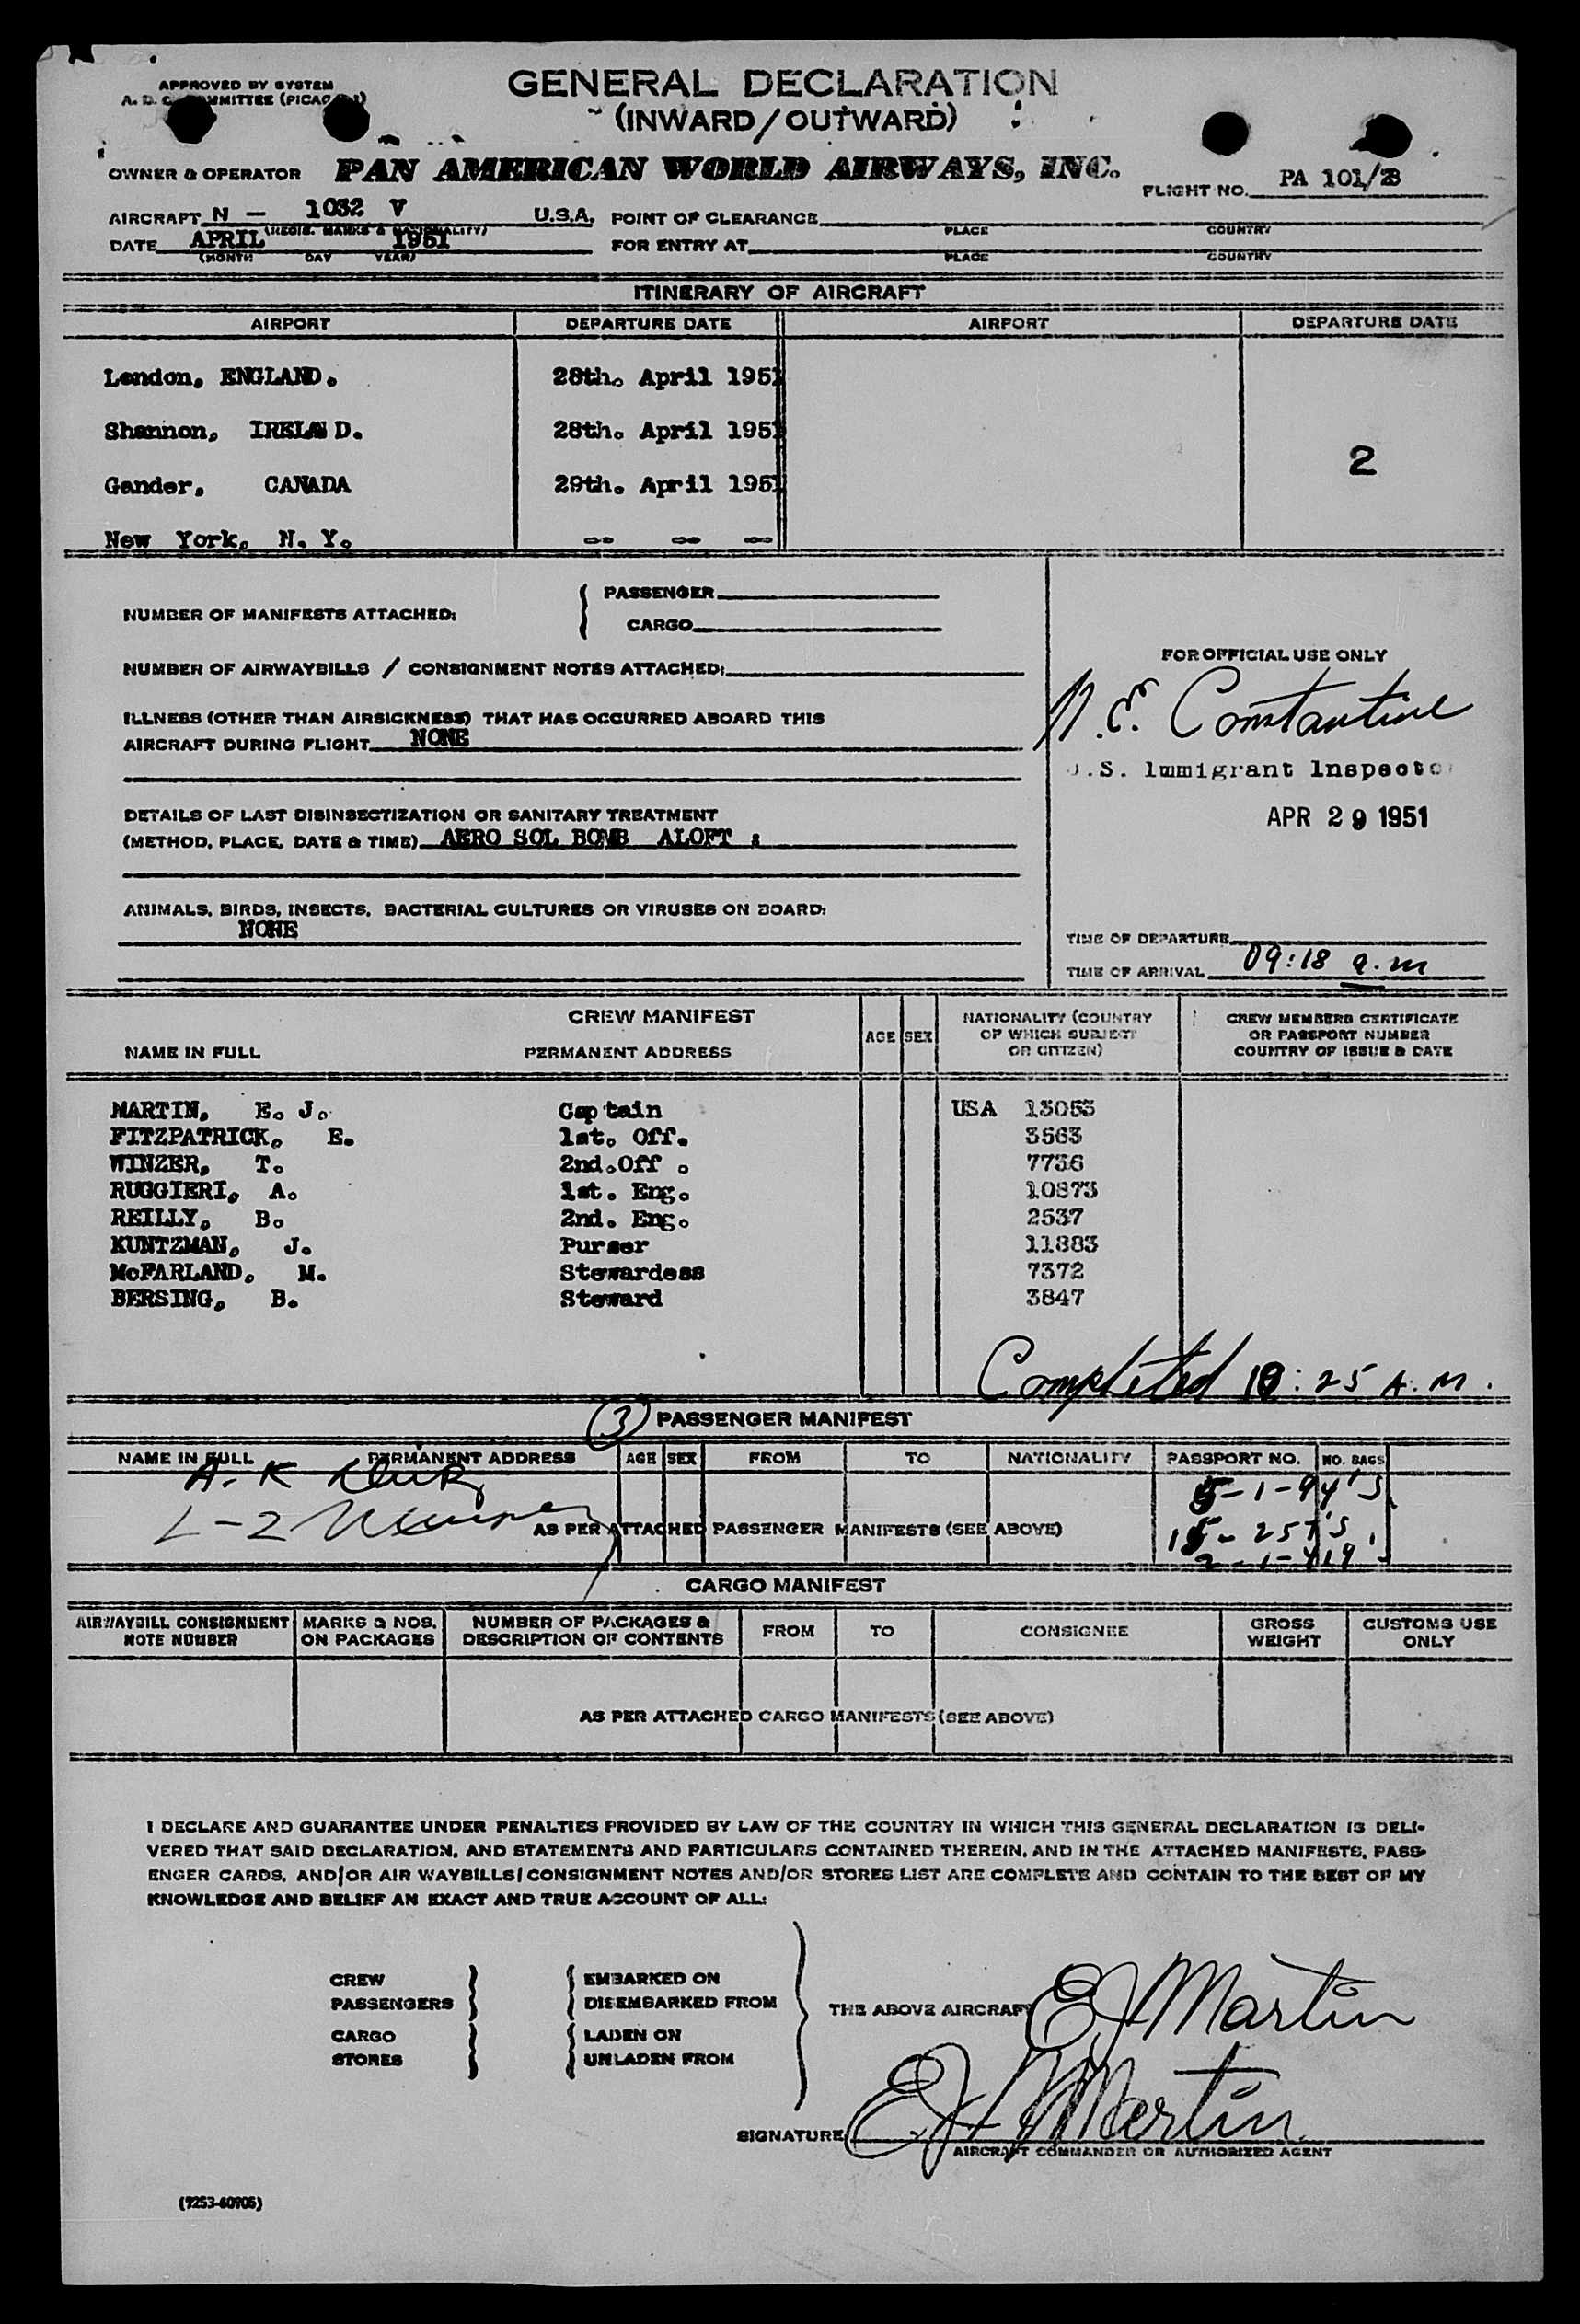 APPROVED BY SYSTEM
GENERAL DECLARATION
(INWARD/OUTWARD)
OWNER & OPERATOR PAN AMERICAN WORLD AIRWAYS, INC.
FLIGHT NO. PA 101/28
AIRCRAFT N - 1032 V U.S.A. POINT OF CLEARANCE
(REGIS. MARKS & NATIONALITY) PLACE COUNTRY
DATE APRIL 1951 FOR ENTRY AT
(MONTH DAY YEAR) PLACE COUNTRY
ITINERARY OF AIRCRAFT
AIRPORT DEPARTURE DATE AIRPORT DEPARTURE DATE
London, ENGLAND. 28th. April 1951
Shannon, IRELAND. 28th. April 1951
2
Gander, CANADA 29th. April 1951
New York, N. Y. -- -- --
NUMBER OF MANIFESTS ATTACHED: PASSENGER
CARGO
NUMBER OF AIRWAYBILLS / CONSIGNMENT NOTES ATTACHED:
FOR OFFICIAL USE ONLY
N. E. Constantine
U.S. Immigrant Inspector
APR 29 1951
ILLNESS (OTHER THAN AIRSICKNESS) THAT HAS OCCURRED ABOARD THIS
AIRCRAFT DURING FLIGHT NONE
DETAILS OF LAST DISINSECTIZATION OR SANITARY TREATMENT
(METHOD, PLACE, DATE & TIME) AERO SOL BOMB ALOFT :
ANIMALS, BIRDS, INSECTS, BACTERIAL CULTURES OR VIRUSES ON BOARD:
NONE
TIME OF DEPARTURE
TIME OF ARRIVAL 09:18 a.m
CREW MANIFEST
NAME IN FULL PERMANENT ADDRESS AGE SEX NATIONALITY (COUNTRY OF WHICH SUBJECT OR CITIZEN) CREW MEMBERS CERTIFICATE OR PASSPORT NUMBER COUNTRY OF ISSUE & DATE
MARTIN, E. J. Captain USA 13053
FITZPATRICK, E. 1st. Off. 3563
WINZER, T. 2nd.Off . 7736
RUGGIERI, A. 1st. Eng. 10873
REILLY, B. 2nd. Eng. 2537
KUNTZMAN, J. Purser 11883
McFARLAND, M. Stewardess 7372
BERSING, B. Steward 3847
Completed 10:25 A.M.
(3) PASSENGER MANIFEST
NAME IN FULL PERMANENT ADDRESS AGE SEX FROM TO NATIONALITY PASSPORT NO. NO. BAGS
A. K
5-1-94's
L-2
AS PER ATTACHED PASSENGER MANIFESTS (SEE ABOVE)
CARGO MANIFEST
AIRWAYBILL CONSIGNMENT NOTE NUMBER MARKS & NOS. ON PACKAGES NUMBER OF PACKAGES & DESCRIPTION OF CONTENTS FROM TO CONSIGNEE GROSS WEIGHT CUSTOMS USE ONLY
AS PER ATTACHED CARGO MANIFESTS (SEE ABOVE)
I DECLARE AND GUARANTEE UNDER PENALTIES PROVIDED BY LAW OF THE COUNTRY IN WHICH THIS GENERAL DECLARATION IS DELI-
VERED THAT SAID DECLARATION, AND STATEMENTS AND PARTICULARS CONTAINED THEREIN, AND IN THE ATTACHED MANIFESTS, PASS-
ENGER CARDS, AND/OR AIR WAYBILLS/CONSIGNMENT NOTES AND/OR STORES LIST ARE COMPLETE AND CONTAIN TO THE BEST OF MY
KNOWLEDGE AND BELIEF AN EXACT AND TRUE ACCOUNT OF ALL:
CREW EMBARKED ON
PASSENGERS DISEMBARKED FROM
THE ABOVE AIRCRAFT EJ Martin
CARGO LADEN ON
STORES UNLADEN FROM
SIGNATURE EJ Martin
AIRCRAFT COMMANDER OR AUTHORIZED AGENT
(7253-60905)